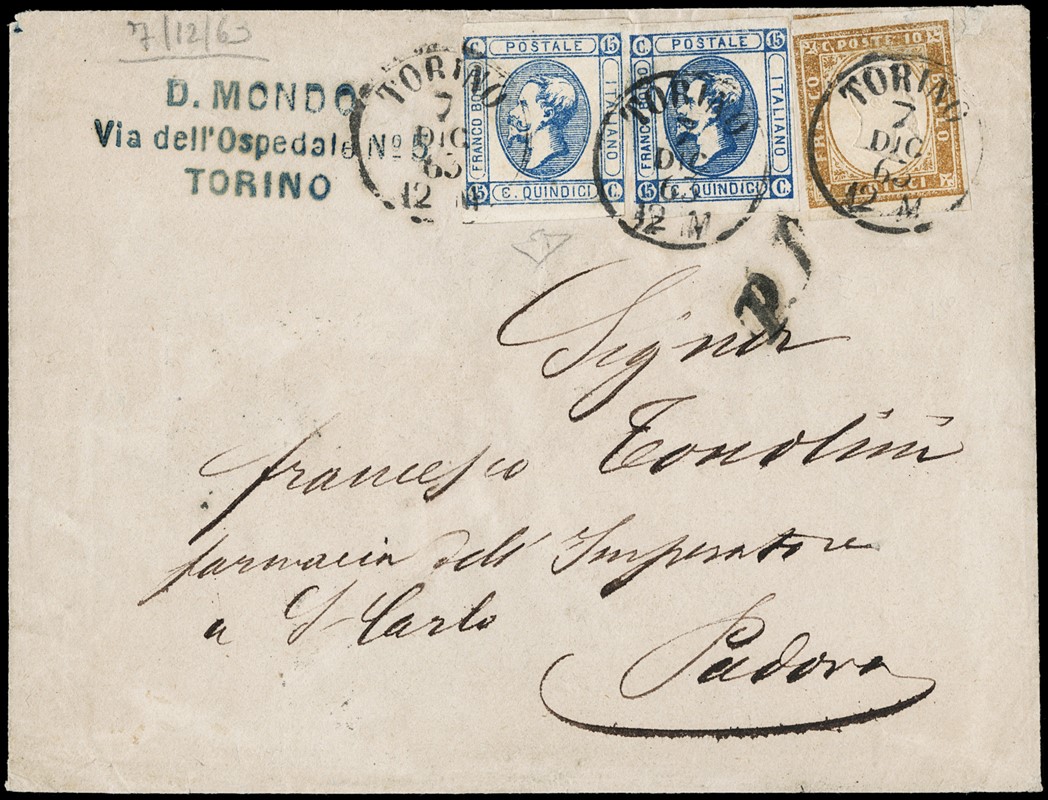 7/12/63
D. MONDO
Via dell'Ospedale No 5
TORINO
TORINO
7
DIC
63
12 M
C. POSTALE 15
FRANCO BOLLO
ITALIANO
15 C. QUINDICI C.
TORINO
7
DIC
63
12 M
C. POSTALE 15
FRANCO BOLLO
ITALIANO
15 C. QUINDICI C.
TORINO
7
DIC
63
12 M
C. POSTE 10
FRANCO
DIECI
P.
Signor
Francesco Tonolini
farmacia dell' Imperatore
a S. Carlo
Padova